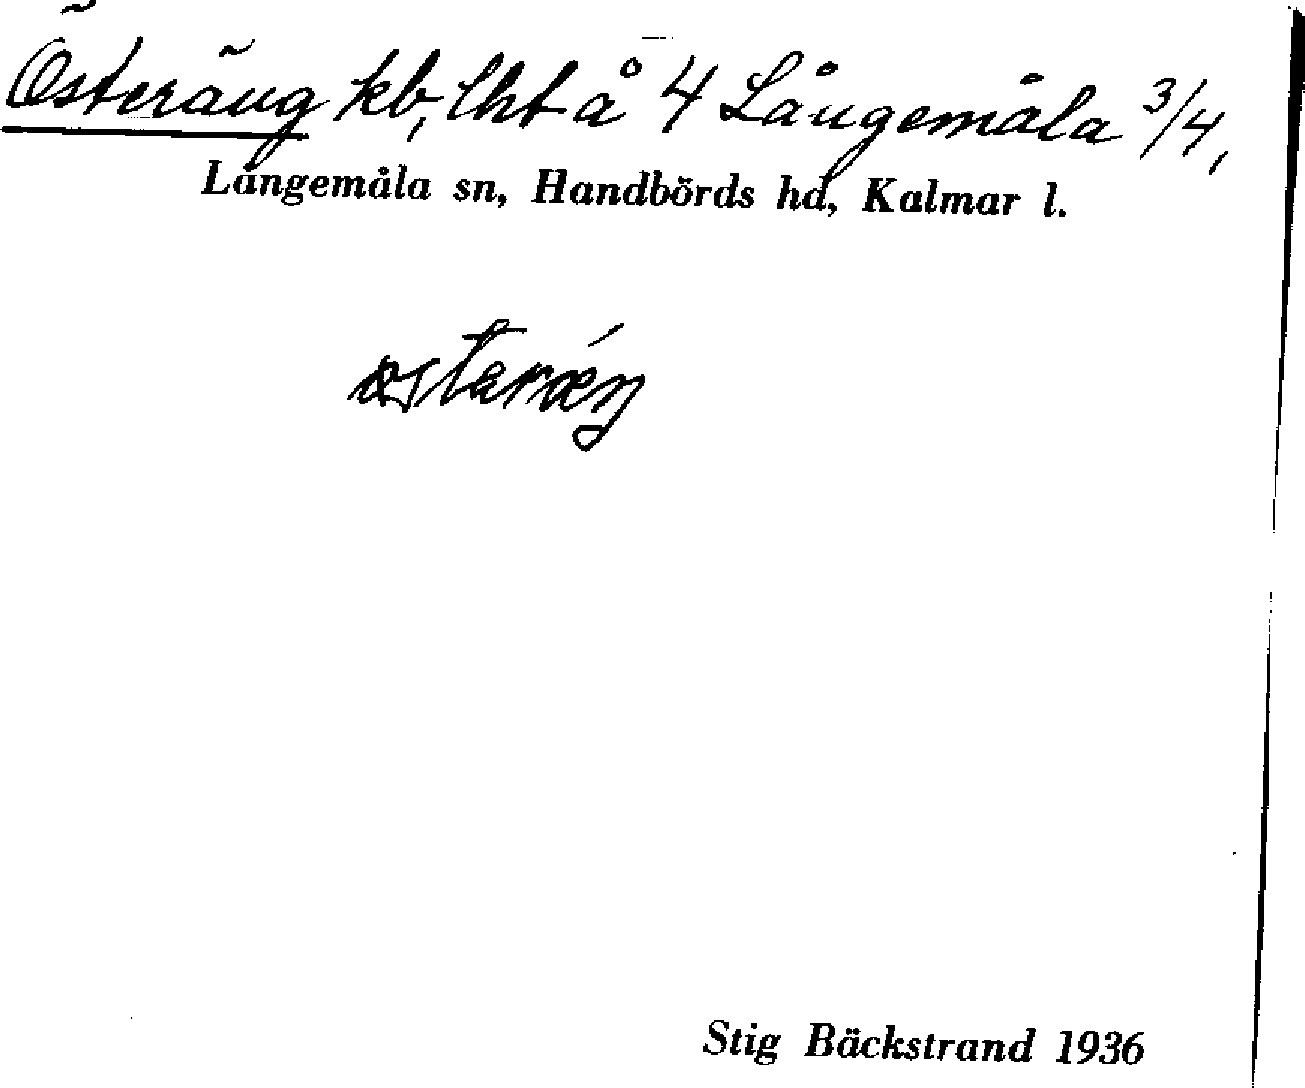 Österäng kb, lht å 4 Långemåla 3/4,
Långemåla sn, Handbörds hd, Kalmar l.
Stig Bäckstrand 1936